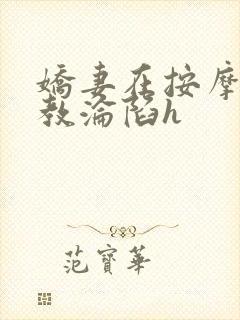 嬌妻在按摩
教淪陷h
范寶華